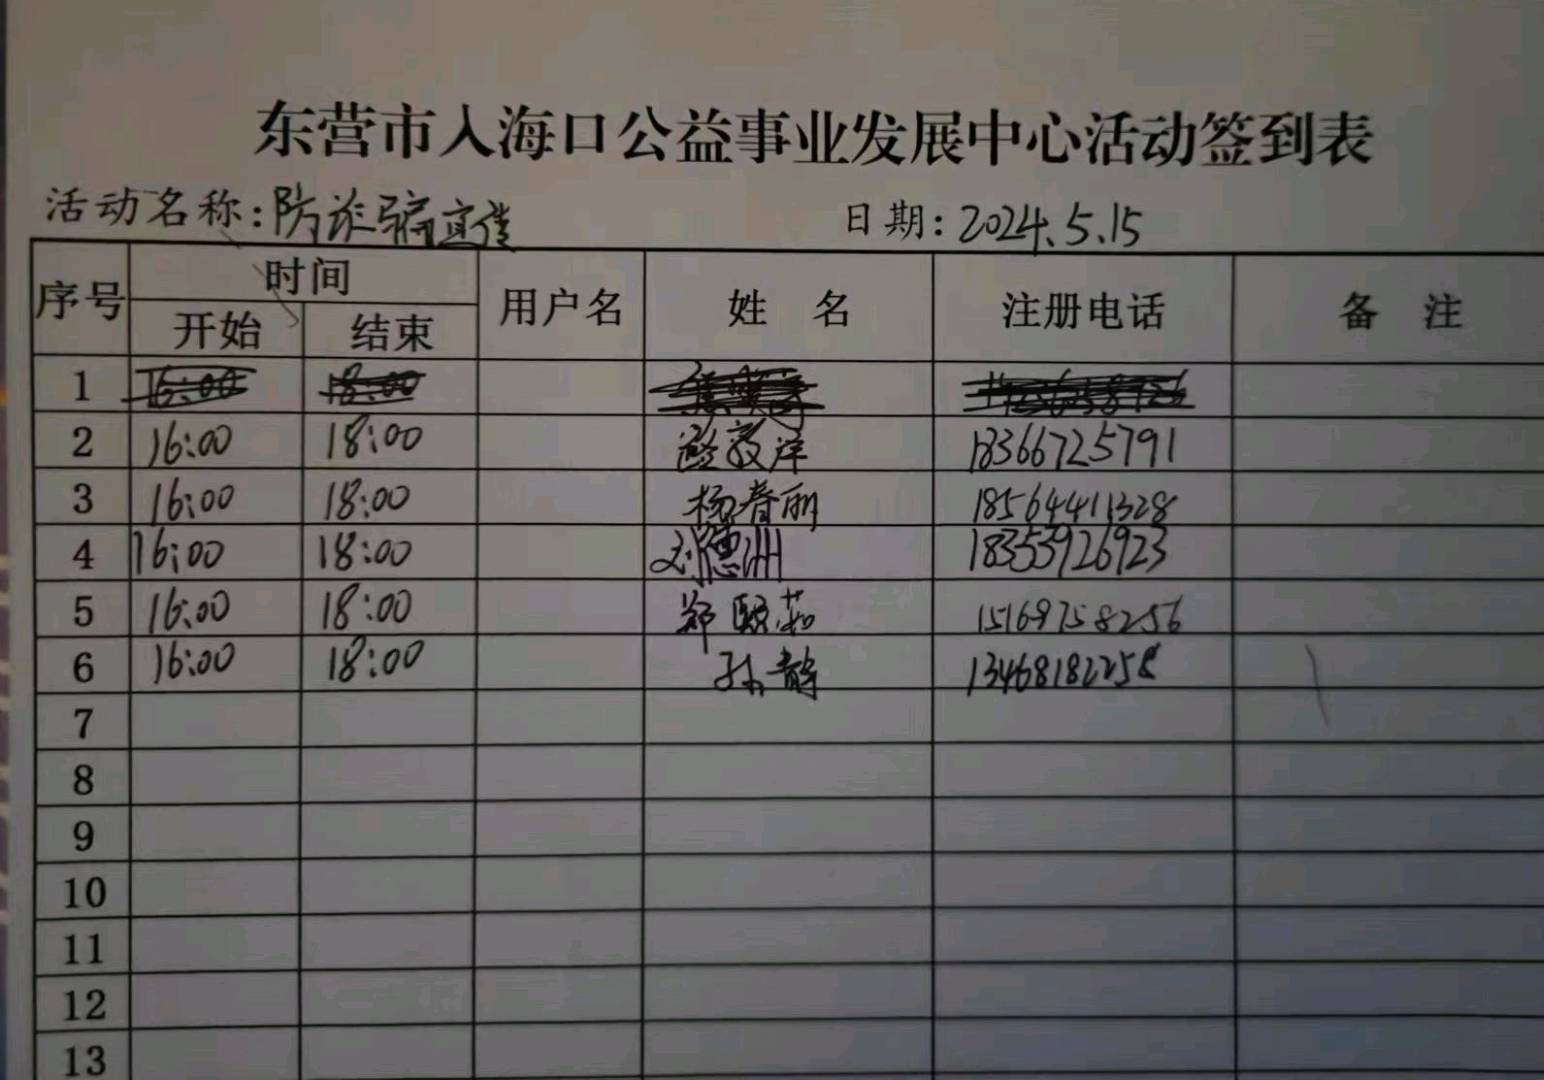 东营市入海口公益事业发展中心活动签到表
活动名称:防诈骗宣传 日期:2024.5.15
序号 时间 用户名 姓 名 注册电话 备 注
开始 结束
1 16:00 18:00
2 16:00 18:00 18366725791
3 16:00 18:00 杨春丽 18564411328
4 16:00 18:00 刘德洲 18353926923
5 16:00 18:00 郑 茹 15169758256
6 16:00 18:00 孙静 13468182258
7
8
9
10
11
12
13